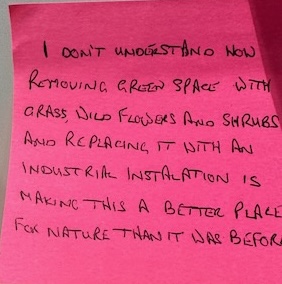 I DON'T UNDERSTAND HOW
REMOVING GREEN SPACE WITH
GRASS, WILD FLOWERS AND SHRUBS
AND REPLACING IT WITH AN
INDUSTRIAL INSTALATION IS
MAKING THIS A BETTER PLACE
FOR NATURE THAN IT WAS BEFOR